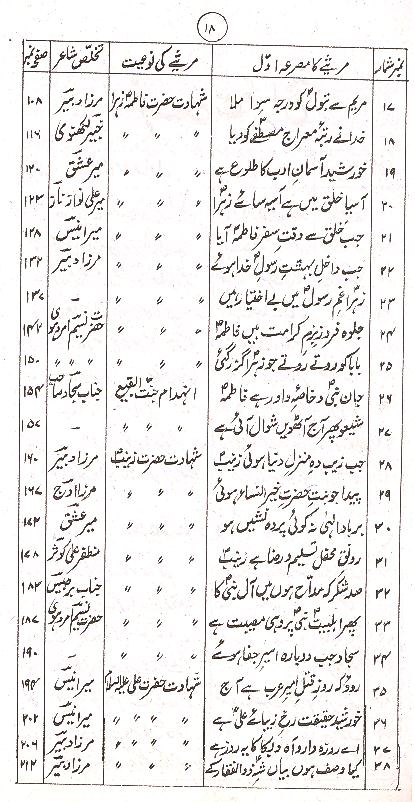 ۱۸
نمبر شمار مرثیے کا مصرعہ اوّل مرثیے کی نوعیت تخلص شاعر صفحہ نمبر
۱۷ مریم سے بتولؑ کو درجہ سوا ملا شہادت حضرت فاطمہ زہراؑ مرزا دبیرؔ ۱۰۸
۱۸ خدا نے رتبۂ معراج مصطفےٰؐ کو دیا 〃 〃 〃 خبیرؔ لکھنوی ۱۱۶
۱۹ خورشید آسمان ادب کا طلوع ہے 〃 〃 〃 میر عشقؔ ۱۲۰
۲۰ آسیا خلق میں ہے آسیہ سائے زہراؑ 〃 〃 〃 میر علی نواز نازؔ ۱۲۳
۲۱ جب خلق سے وقت سفر فاطمہؑ آیا 〃 〃 〃 میر انیسؔ ۱۲۸
۲۲ جب داخل بہشت رسولؐ خدا ہوئے 〃 〃 〃 مرزا دبیرؔ ۱۳۲
۲۳ زہراؑ غم رسولؐ میں بے اختیار ہیں 〃 〃 〃 – ۱۳۷
۲۴ جلوہ فروز بزم کرامت ہیں فاطمہؑ 〃 〃 〃 حضرت نسیمؔ امروہوی ۱۴۲
۲۵ بابا کو روتے روتے جو زہراؑ گزر گئی 〃 〃 〃 〃 〃 〃 ۱۵۰
۲۶ جان نبیؐ و خاصۂ داور ہے فاطمہؑ انہدام جنت البقیع جناب سجاد صاحب ۱۵۴
۲۷ شیعو پھر آج آٹھویں شوال آئی ہے 〃 〃 〃 – ۱۵۷
۲۸ جب زیب دہ منزل دنیا ہوئی زینبؑ شہادت حضرت زینبؑ مرزا دبیرؔ ۱۶۰
۲۹ پیدا جو بنت حضرت خیر النساء ہوئی 〃 〃 〃 مرزا اوجؔ ۱۶۷
۳۰ برباد الٰہی نہ کوئی پردہ نشیں ہو 〃 〃 〃 میر عشقؔ ۱۷۲
۳۱ رونق محفل تسلیم و رضا ہے زینبؑ 〃 〃 〃 مظفر علی کوثرؔ ۱۷۸
۳۲ صد شکر کہ مداح ہوں میں آل نبیؐ کا 〃 〃 〃 جناب برجیسؔ ۱۸۲
۳۳ پھر اہلبیتؑ نبیؐ پر وہی مصیبت ہے 〃 〃 〃 حضرت نسیمؔ امروہوی ۱۸۷
۳۴ سجادؑ جب دوبارہ اسیر جفا ہوئے 〃 〃 〃 – ۱۹۰
۳۵ روؤ کہ روز قتل امیر عرب ہے آج شہادت حضرت علی علیہ السلام میر انیسؔ ۱۹۴
۳۶ خورشید حقیقت رخ زیبائے علیؑ ہے 〃 〃 〃 میر انیسؔ ۲۰۲
۳۷ اے روزہ دارو آہ و بکا کا یہ روز ہے 〃 〃 〃 مرزا دبیرؔ ۲۰۶
۳۸ کیا وصف ہوں بیاں شہ ذوالفقار کے 〃 〃 〃 مرزا دبیرؔ ۲۱۲